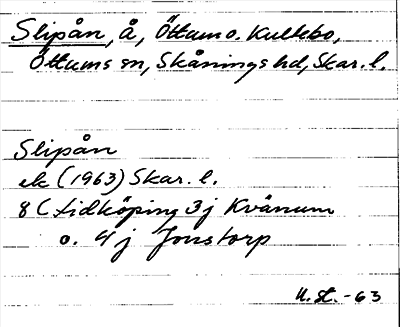 Slipån, å, Öttum o. Kullebo,
Öttums sn, Skånings hd, Skar. l.
Slipån
ek (1963) Skar. l.
8 C Lidköping 3j Kvänum
o. 4j Jonstorp
U. st. -63